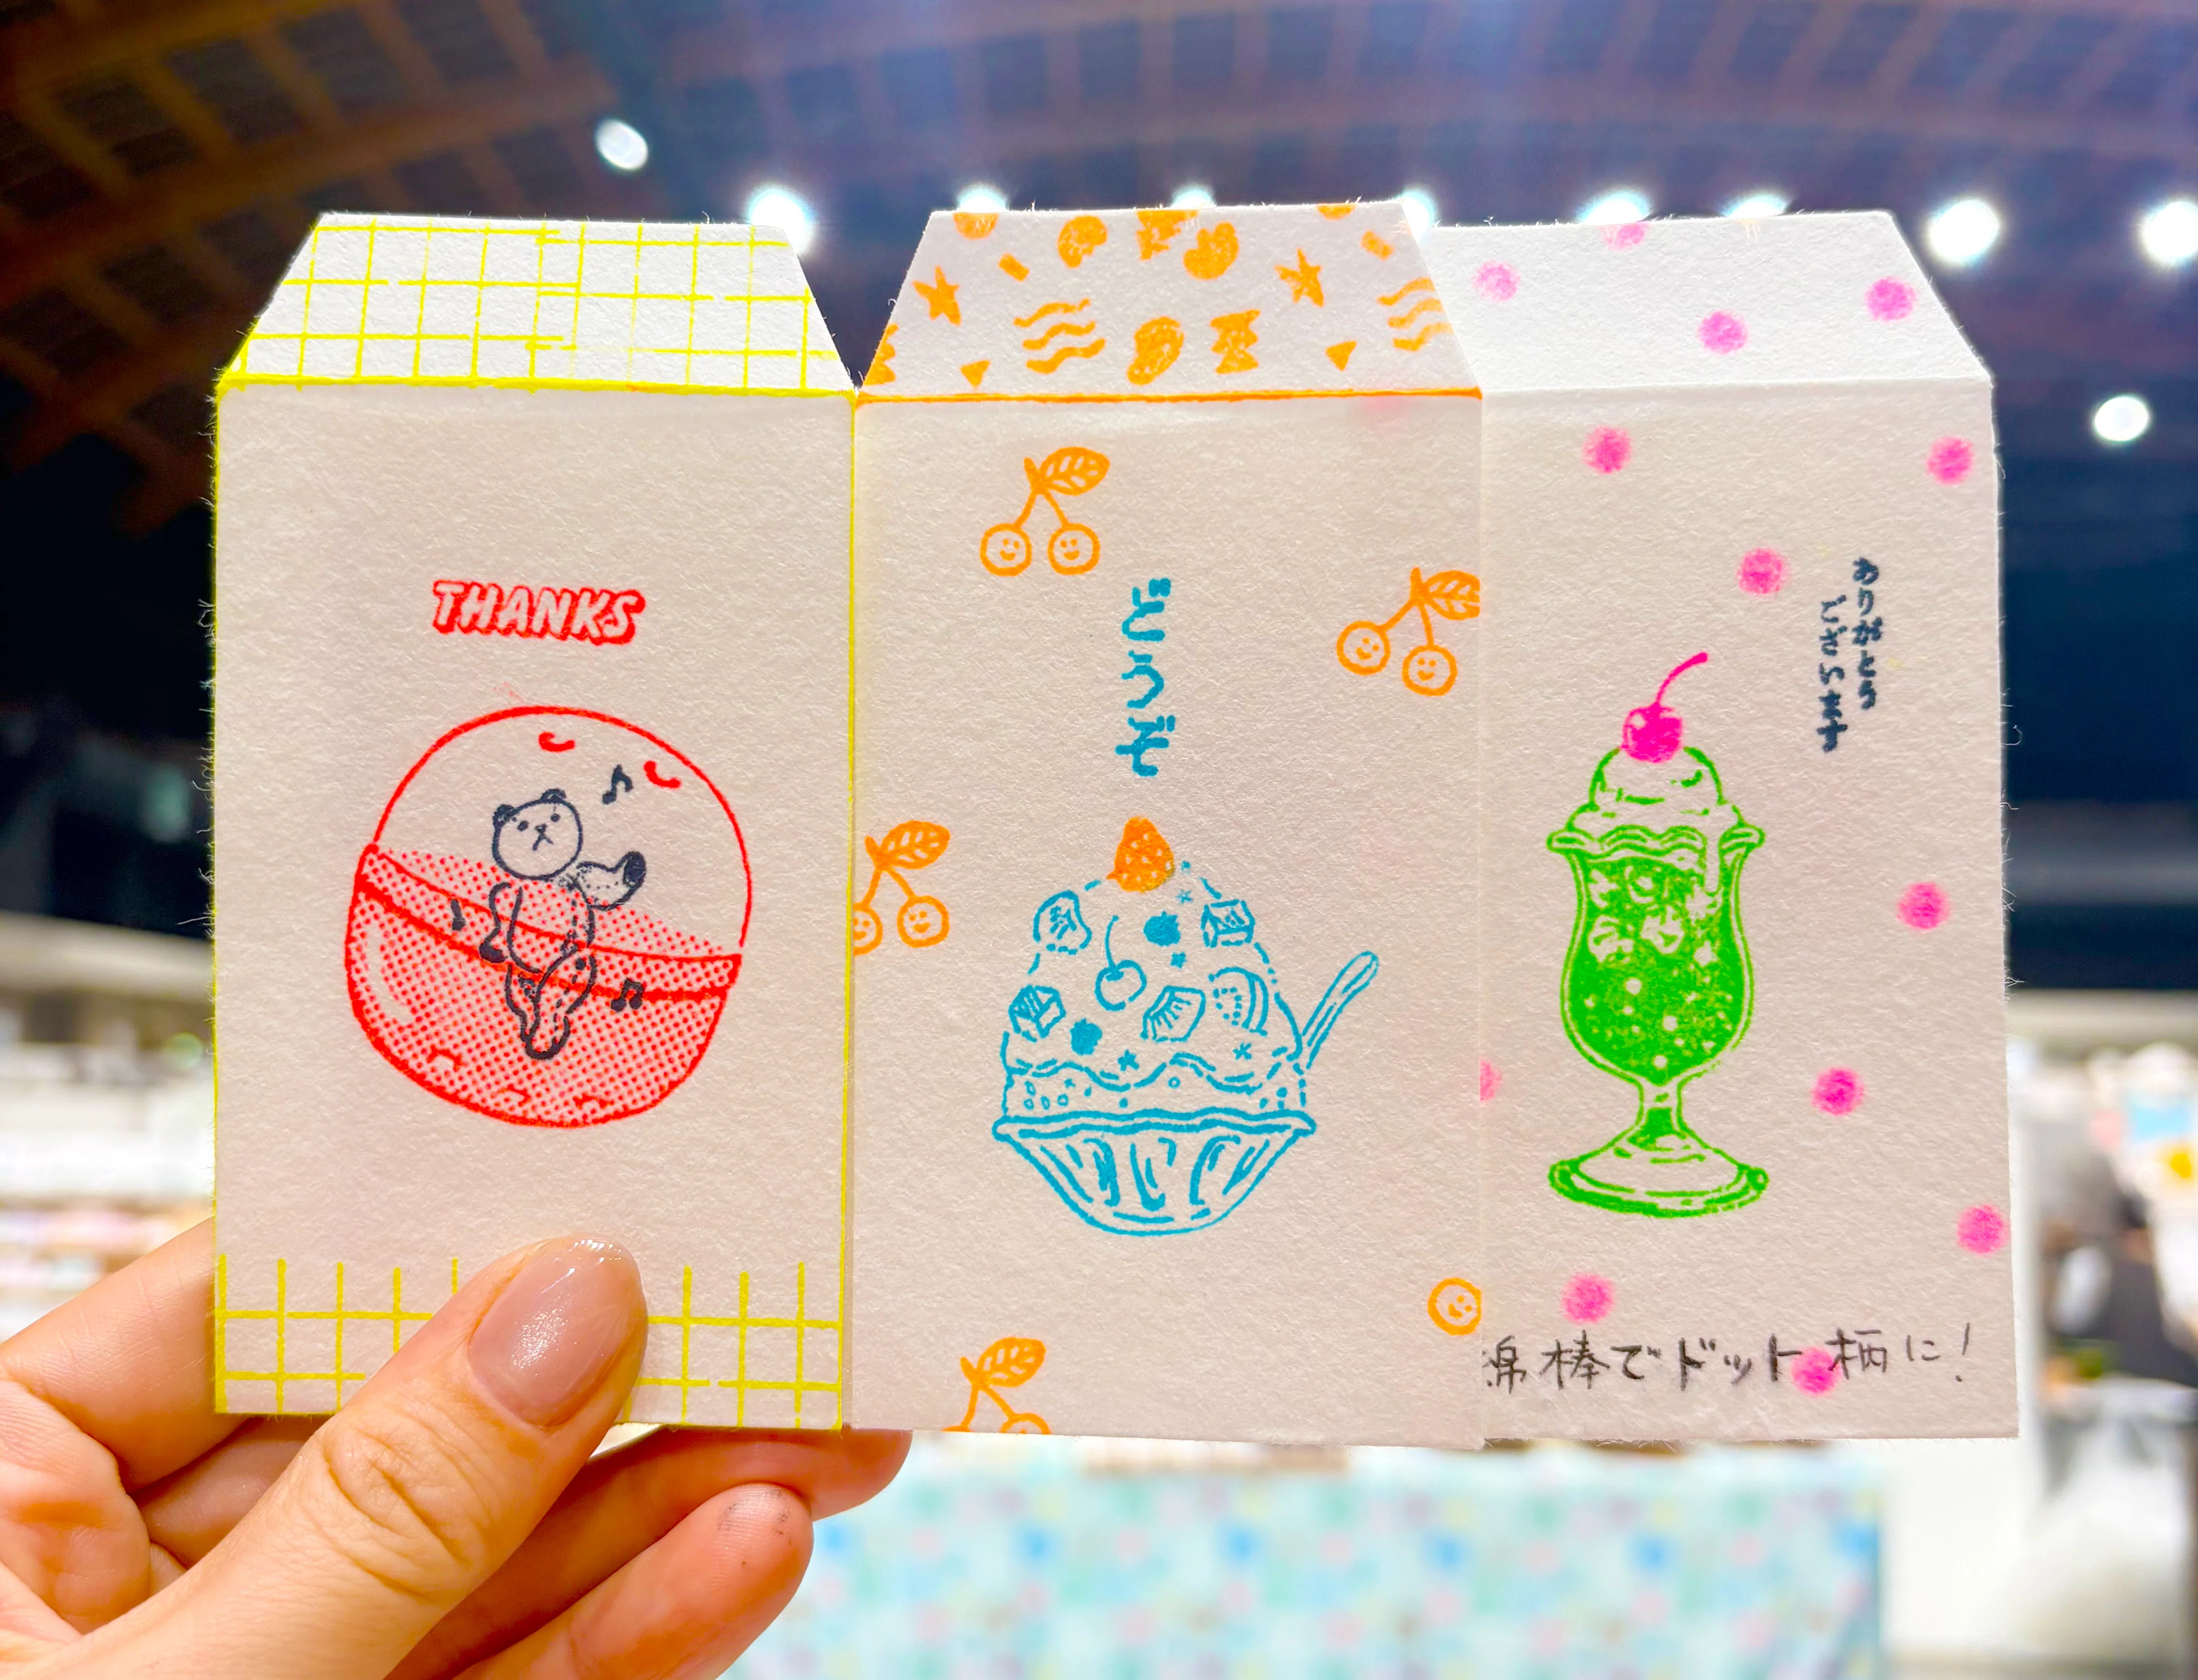 THANKS
どうぞ
ありがとう
ございます
綿棒でドット柄に！